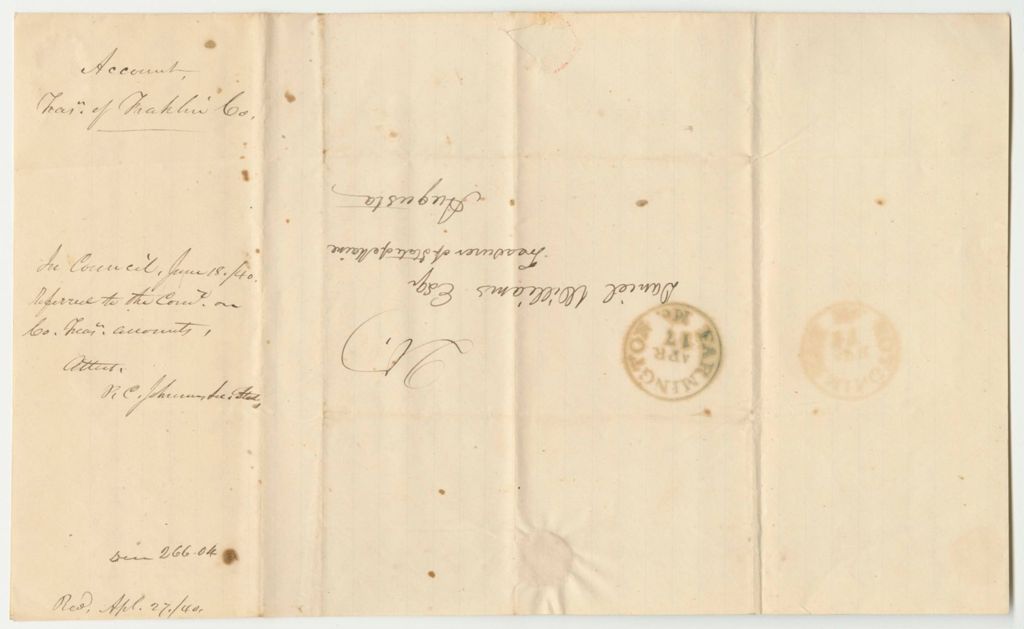 Account,
Treasr. of Franklin Co.
In Council, June 18./40.
Referred to the Comee. on
Co. Treasr. accounts,
Attest.
P. C. Johnson, Sec. State,
Due 266.04
Recd. Apl. 27./40.
Daniel Williams Esqr
Treasurer of State of Maine
Augusta
FARMINGTON Me.
APR
17